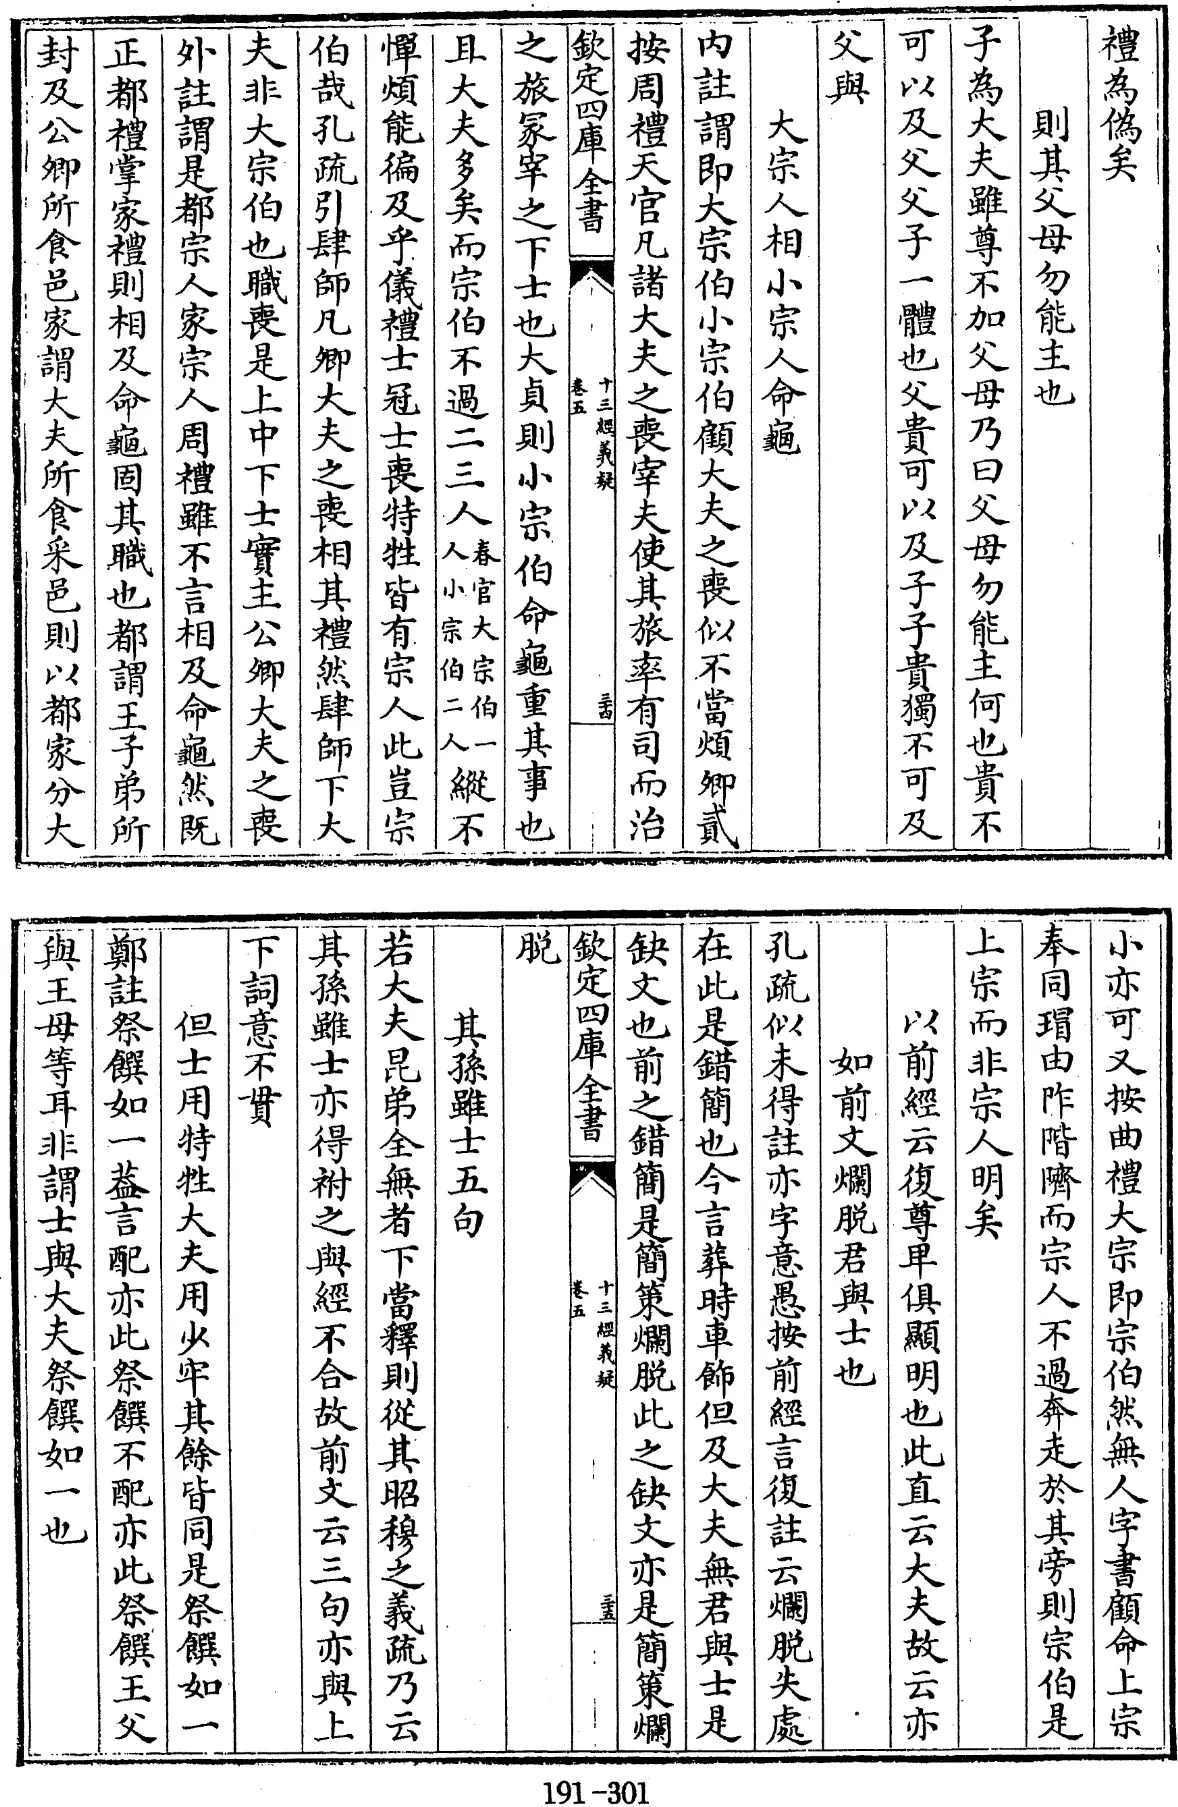 禮為偽矣
則其父母勿能主也
子為大夫雖尊不加父母乃曰父母勿能主何也貴不
可以及父父子一體也父貴可以及子子貴獨不可及
父與
大宗人相小宗人命龜
内註謂即大宗伯小宗伯顧大夫之喪似不當煩卿貳
按周禮天官凡諸大夫之喪宰夫使其旅率有司而治
欽定四庫全書
十三經義疑
卷五
三十四
之旅冢宰之下士也大貞則小宗伯命龜重其事也
且大夫多矣而宗伯不過二三人春官大宗伯一人小宗伯二人縱不
憚煩能徧及乎儀禮士冠士喪特牲皆有宗人此豈宗
伯哉孔疏引肆師凡卿大夫之喪相其禮然肆師下大
夫非大宗伯也職喪是上中下士實主公卿大夫之喪
外註謂是都宗人家宗人周禮雖不言相及命龜然既
正都禮掌家禮則相及命龜固其職也都謂王子弟所
封及公卿所食邑家謂大夫所食采邑則以都家分大
小亦可又按曲禮大宗即宗伯然無人字書顧命上宗
奉同瑁由阼階隮而宗人不過奔走於其旁則宗伯是
上宗而非宗人明矣
以前經云復尊卑俱顯明也此直云大夫故云亦
如前文爛脱君與士也
孔疏似未得註亦字意愚按前經言復註云爛脱失處
在此是錯簡也今言葬時車飾但及大夫無君與士是
缺文也前之錯簡是簡策爛脱此之缺文亦是簡策爛
欽定四庫全書
十三經義疑
卷五
三十五
脱
其孫雖士五句
若大夫昆弟全無者下當釋則從其昭穆之義疏乃云
其孫雖士亦得祔之與經不合故前文云三句亦與上
下詞意不貫
但士用特牲大夫用少牢其餘皆同是祭饌如一
鄭註祭饌如一葢言配亦此祭饌不配亦此祭饌王父
與王母等耳非謂士與大夫祭饌如一也
191-301